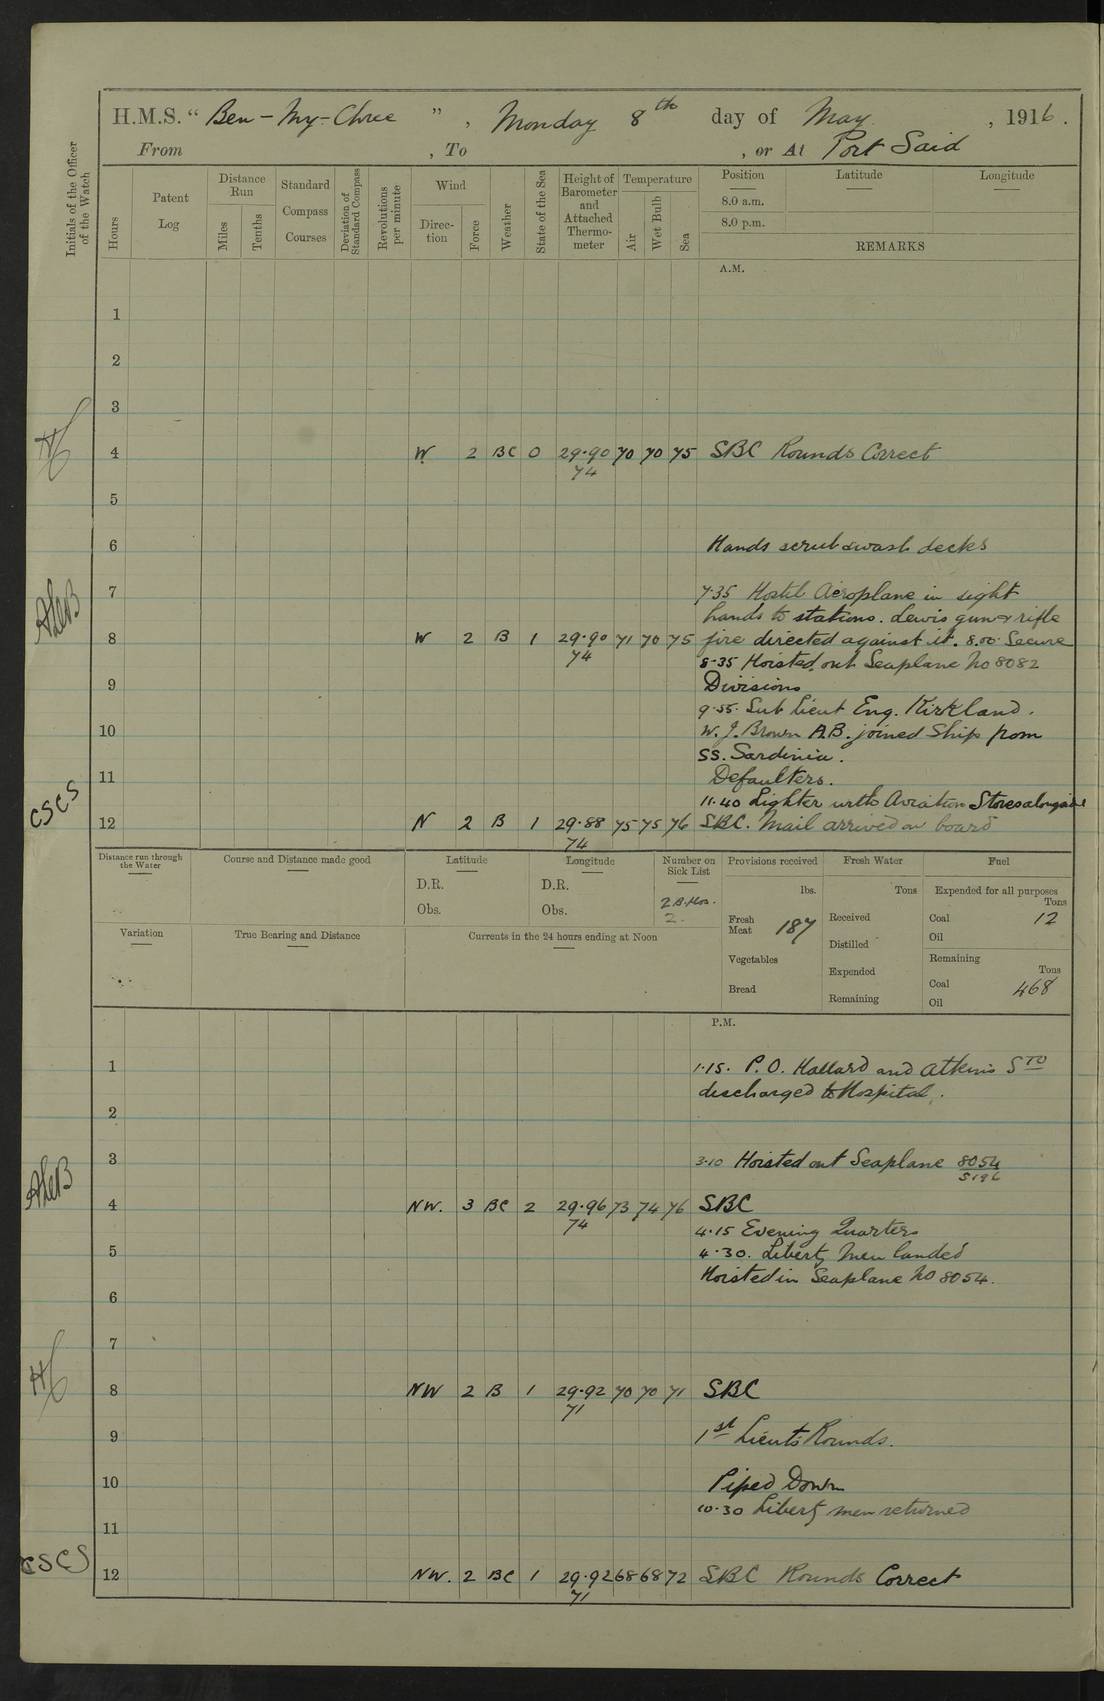 H.M.S. “ Ben-My-Chree ” , Monday 8th day of May , 1916.
From , To , or At Port Said
Initials of the Officer of the Watch
Hours
Patent Log
Distance Run
Miles
Tenths
Standard Compass Courses
Deviation of Standard Compass
Revolutions per minute
Wind
Direc-tion
Force
Weather
State of the Sea
Height of Barometer and Attached Thermo-meter
Temperature
Air
Wet Bulb
Sea
Position Latitude Longitude
8.0 a.m.
8.0 p.m.
REMARKS
A.M.
1
2
3
4 W. 2 BC 0 29.90 70 70 75 SBC Rounds Correct
74
5
6 Hands scrub & wash decks
7 7.35 Hostil Aeroplane in sight
hands to stations. Lewis gun & rifle
AHeB
8 W 2 B 1 29.90 71 70 75 fire directed against it. 8.00 Secure
74
8.35 Hoisted out Seaplane No 8082
9 Divisions
9.55. Sub Lieut Eng. Kirkland.
10 W. J. Brown A.B. joined Ship from
SS. Sardinia.
11 Defaulters.
11.40 Lighter with Aviation Stores alongside
CSCS
12 N 2 B 1 29.88 75 75 76 SBC. Mail arrived on board
74
Distance run through the Water
Course and Distance made good
Latitude
D.R.
Obs.
Longitude
D.R.
Obs.
Number on Sick List
2 B.Hos.
2.
Provisions received
lbs.
Fresh Meat 187
Vegetables
Bread
Fresh Water
Tons
Received
Distilled
Expended
Remaining
Fuel
Expended for all purposes
Tons
Coal 12
Oil
Remaining
Tons
Coal 468
Oil
Variation
True Bearing and Distance
Currents in the 24 hours ending at Noon
P.M.
1 1.15. P.O. Hallard and Atkins STO
discharged to Hospital.
2
3 3.10 Hoisted out Seaplane 8054
AHeB
4 NW. 3 BC 2 29.96 73 74 76 SBC
74
4.15 Evening Quarters
5 4.30. Liberty Men landed
Hoisted in Seaplane No 8054.
6
7
8 NW 2 B 1 29.92 70 70 71 SBC
71
9 1st Lieuts Rounds.
10 Piped Down
10.30 Liberty men returned
11
CSCS
12 NW. 2 BC 1 29.92 68 68 72 SBC Rounds Correct
71